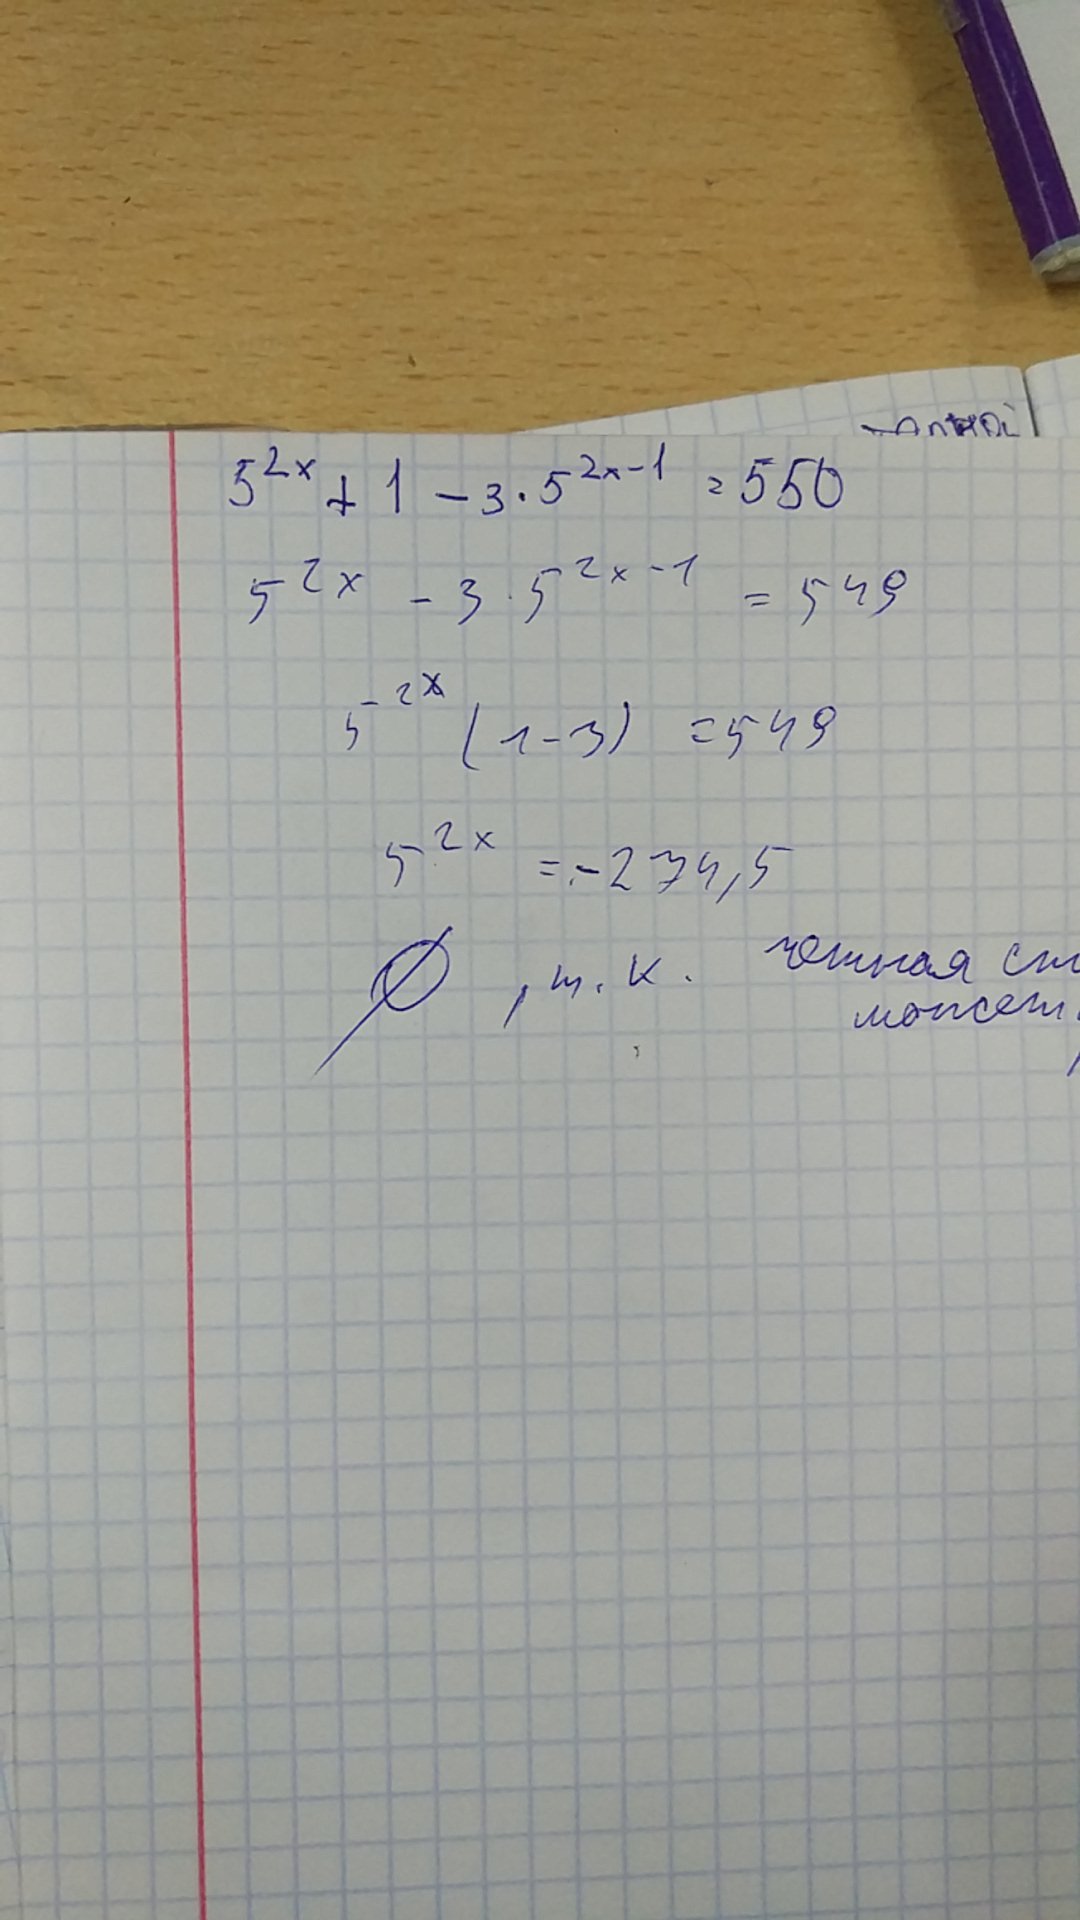 5^2x + 1 - 3 · 5^2x-1 = 550
5^2x - 3 · 5^2x-1 = 549
5^2x (1-3) = 549
5^2x = -274,5
∅, т.к. четная
может